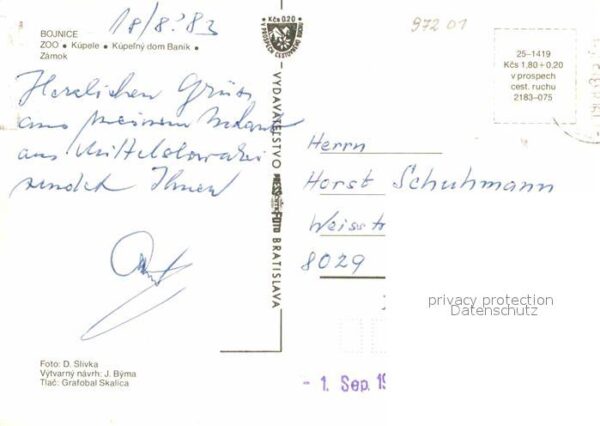 18/8.83
BOJNICE
ZOO • Kúpele • Kúpeľný dom Baník •
Zámok
Herzlichen Gruss
aus meinem Urlaub
aus Mittelslowakei
sendet Ihnen
Foto: D. Slivka
Výtvarný návrh: J. Býma
Tlač: Grafobal Skalica
Kčs 0,20
V PROSPECH CESTOVNÉHO RUCHU
VYDAVATEĽSTVO PRESSFOTO BRATISLAVA
972 01
25-1419
Kčs 1,80 + 0,20
v prospech
cest. ruchu
2183-075
Herrn
Horst Schuhmann
Weisst
8029
privacy protection
Datenschutz
- 1. Sep. 19